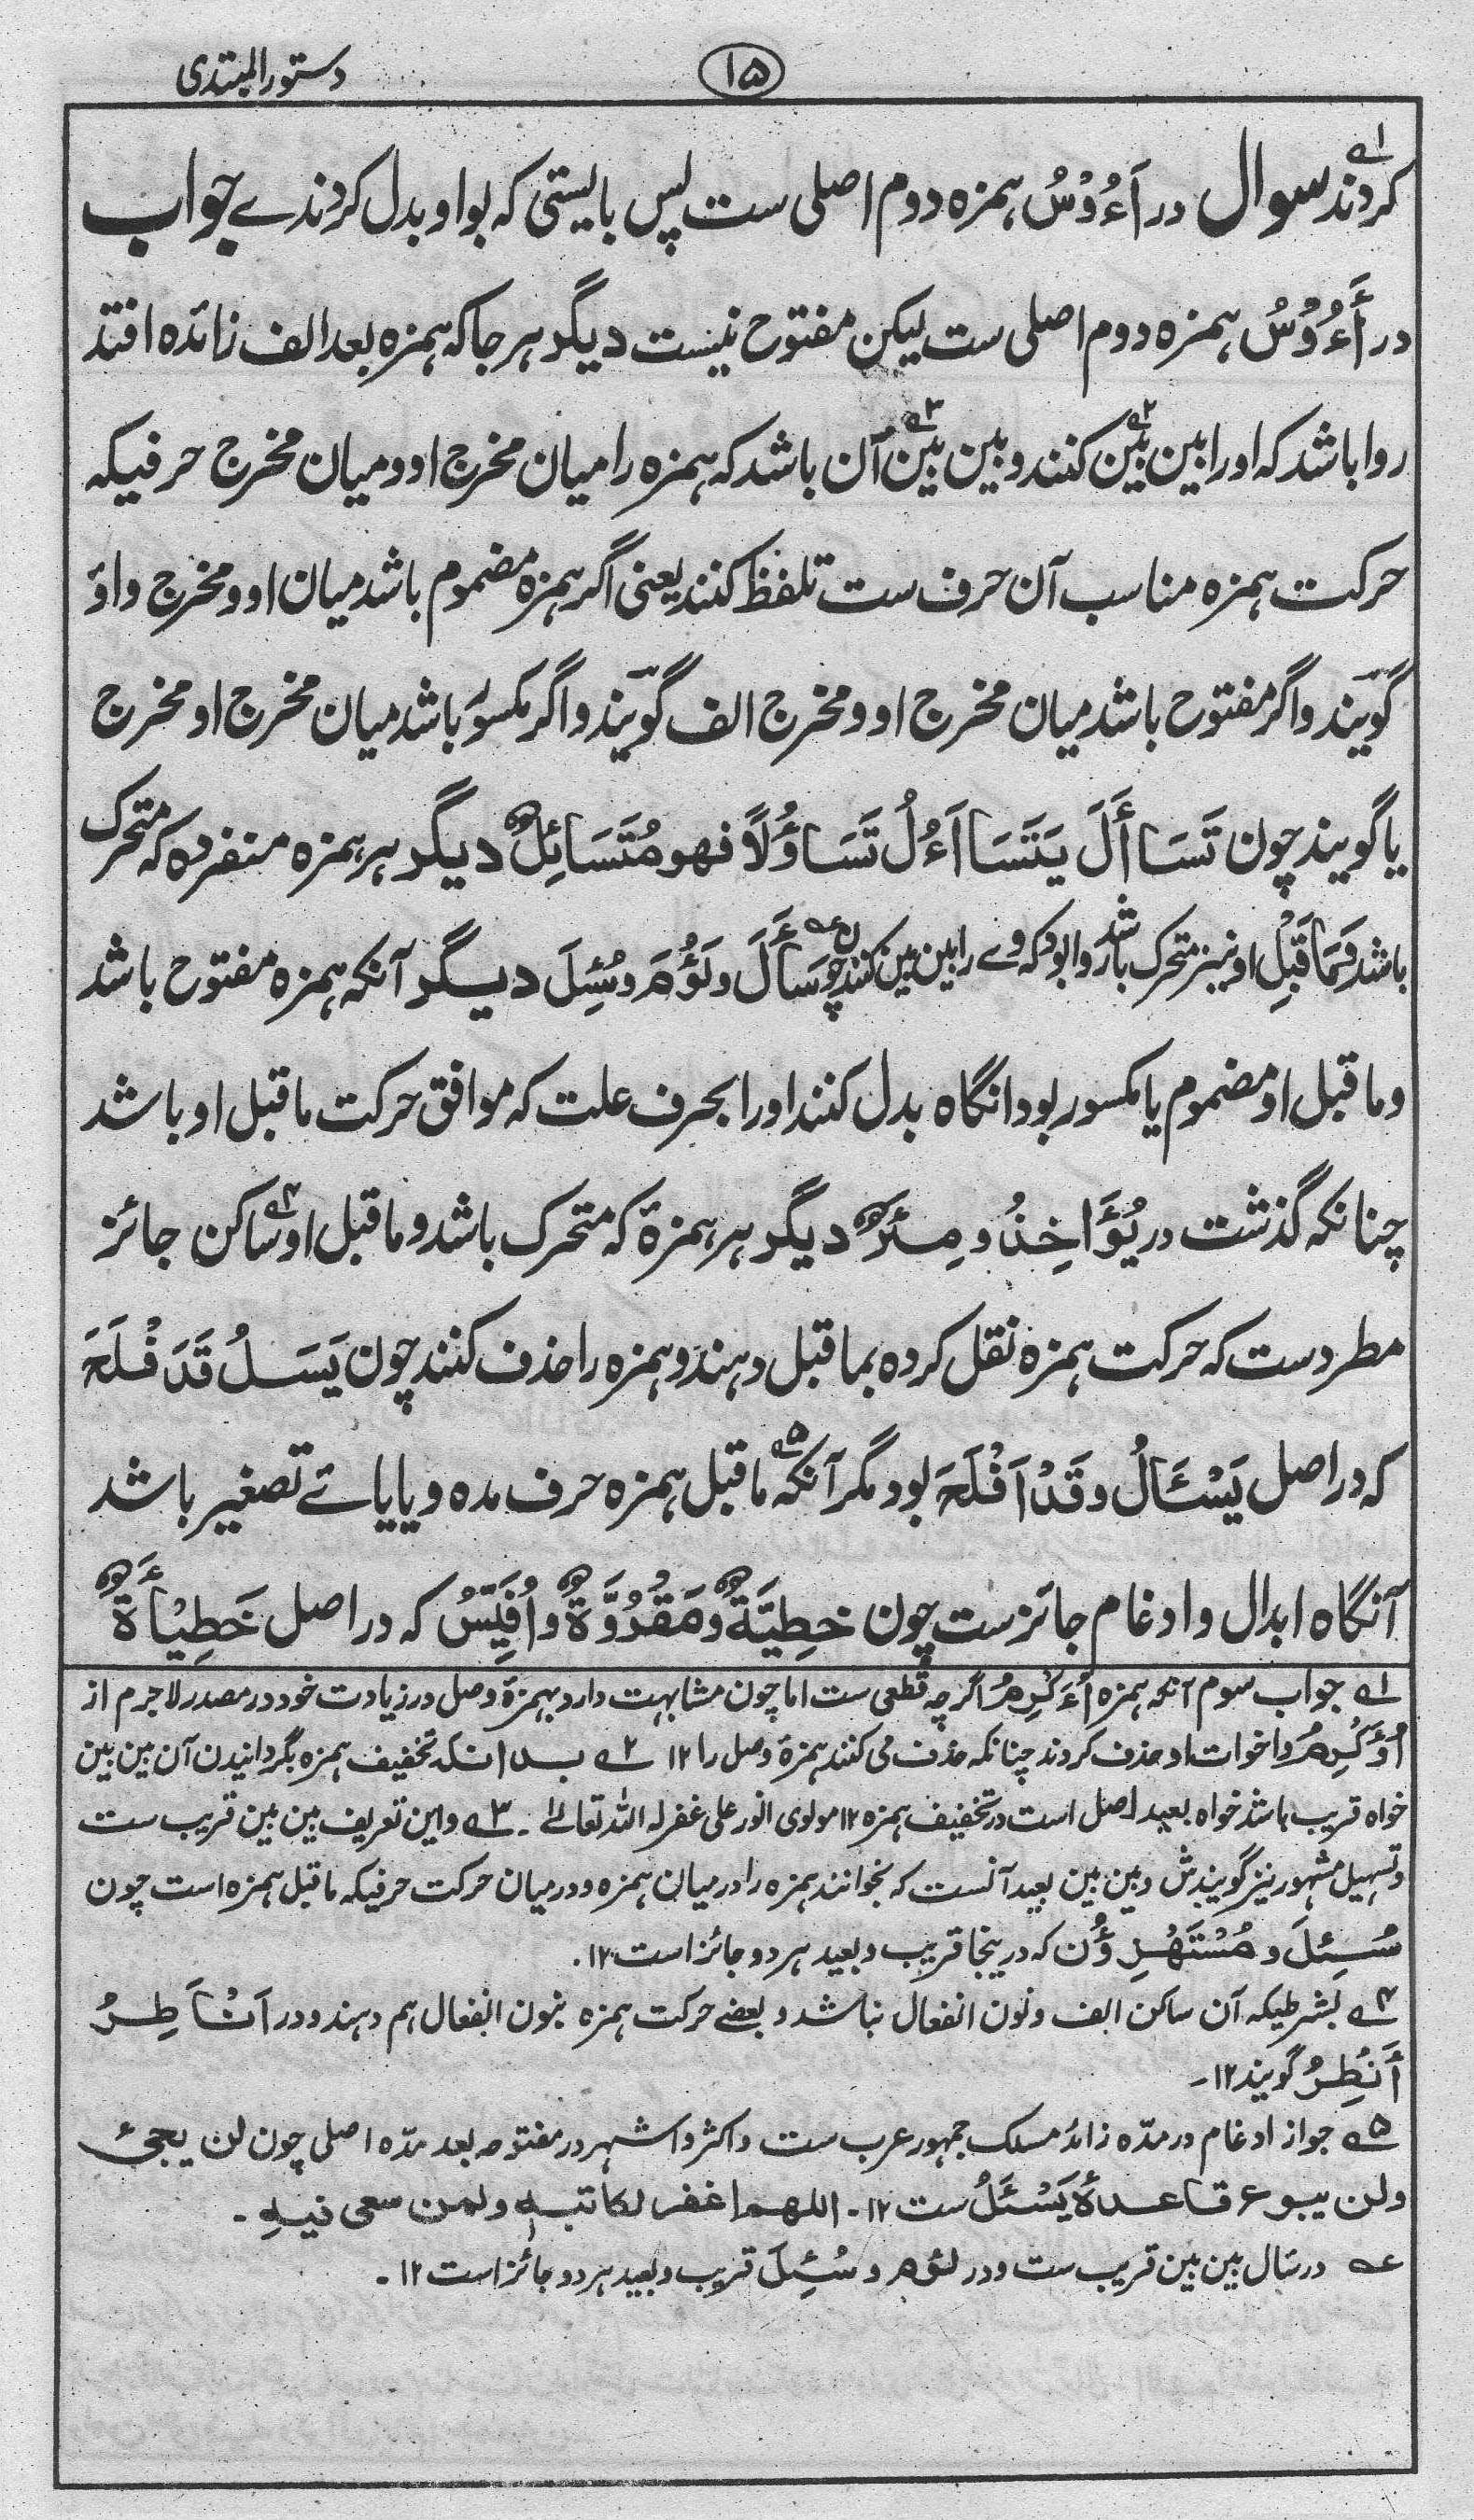 دستور المبتدی
۱۵
کردند۱؎ سوال در اَءُوْسُ ہمزہ دوم اصلی ست پس بایستی کہ بواو بدل کردندے جواب
در أَءُوْسُ ہمزہ دوم اصلی ست لیکن مفتوح نیست دیگر ہر جا کہ ہمزہ بعد الف زائدہ افتد
روا باشد کہ اورا بین بین۲؎ کنند و بین بین۳؎ آن باشد کہ ہمزہ را میان مخرج او و میان مخرج حرفیکہ
حرکت ہمزہ مناسب آن حرف ست تلفظ کنند یعنی اگر ہمزہ مضموم باشد میان او و مخرج واؤ
گویند و اگر مفتوح باشد میان مخرج او و مخرج الف گویند و اگر مکسور باشد میان مخرج او مخرج
یا گویند چون تَسَاأَلَ یَتَسَااَءُلُ تَسَاؤُلًا فهو مُتَسَائِلٌ دیگر ہر ہمزہ منفردہ کہ متحرک
باشد و ماقبل او نیز متحرک باشد روا بود کہ وے را بین بین کنند چون عہ سَأَلَ و لَؤُمَ و سُئِلَ دیگر آنکہ ہمزہ مفتوح باشد
و ما قبل او مضموم یا مکسور بود انگاہ بدل کنند اورا بحرف علت کہ موافق حرکت ماقبل او باشد
چنانکہ گذشت در یُؤَاخِذُ و مِئَرٌ دیگر ہر ہمزۃ کہ متحرک باشد و ماقبل او ساکن۴؎ جائز
مطرد ست کہ حرکت ہمزہ نقل کردہ بما قبل دہند و ہمزہ را حذف کنند چون یَسَلُ قَدَ فْلَحَ
کہ در اصل یَسْئَالُ و قَدْ اَفْلَحَ بود مگر آنکہ۵؎ ماقبل ہمزہ حرف مدہ و یا یائے تصغیر باشد
آنگاہ ابدال و ادغام جائز ست چون خطِیَّةٌ و مَقْرُوَّةٌ و اُفَیِّسُ کہ در اصل خَطِیْأَةٌ
۱؎ جواب سوم آنکہ ہمزہ أُءَکْرِمُ اگرچہ قطعی ست اما چون مشابہت دارد بہمزۂ وصل در زیادت خود در مصدر لاجرم از
اُؤَکْرِمُ و اخوات او حذف کردند چنانکہ حذف می کنند ہمزۂ وصل را ۱۲ ۲؎ بدانکہ تخفیف ہمزہ بگردانیدن آن بین بین
خواہ قریب باشد خواہ بعید اصل است در تخفیف ہمزہ ۱۲ مولوی انور علی غفر لہ اللہ تعالیٰ۔ ۳؎ و این تعریف بین بین قریب ست
و تسہیل مشہور نیز گویندش و بین بین بعید آنست کہ بخوانند ہمزہ را درمیان ہمزہ و درمیان حرکت حرفیکہ ماقبل ہمزہ است چون
سُئِلَ و مُسْتَهْزِؤُن کہ درینجا قریب و بعید ہر دو جائز است ۱۲.
۴؎ بشرطیکہ آن ساکن الف و نون انفعال نباشد و بعضے حرکت ہمزہ بنون انفعال ہم دہند و در اَنْاَطِرُ
أَنَطِرُ گویند ۱۲۔
۵؎ جواز ادغام در مدّہ زائد مسلک جمہور عرب ست و اکثر و اشہر در مفتوحہ بعد مدّہ اصلی چون لن یجیٔ
و لن یبوء قاعدۂ یَسْئَلُ ست ۱۲۔ اللهم اغفر لکاتبه ولمن سعی فیه۔
عہ در سَأل بین بین قریب ست و در لئوم و سُئِلَ قریب و بعید ہر دو جائز است ۱۲۔